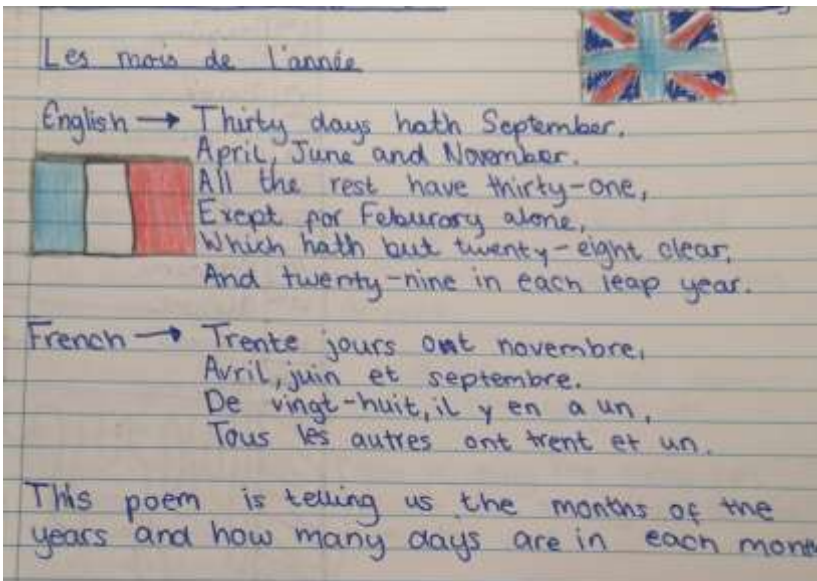 Les mois de l'année
English → Thirty days hath September.
April, June and November.
All the rest have thirty-one,
Exept for Feburary alone,
Which hath but twenty-eight clear,
And twenty-nine in each leap year.
French → Trente jours ont novembre,
Avril, juin et septembre.
De vingt-huit, il y en a un,
Tous les autres ont trent et un.
This poem is telling us the months of the
years and how many days are in each